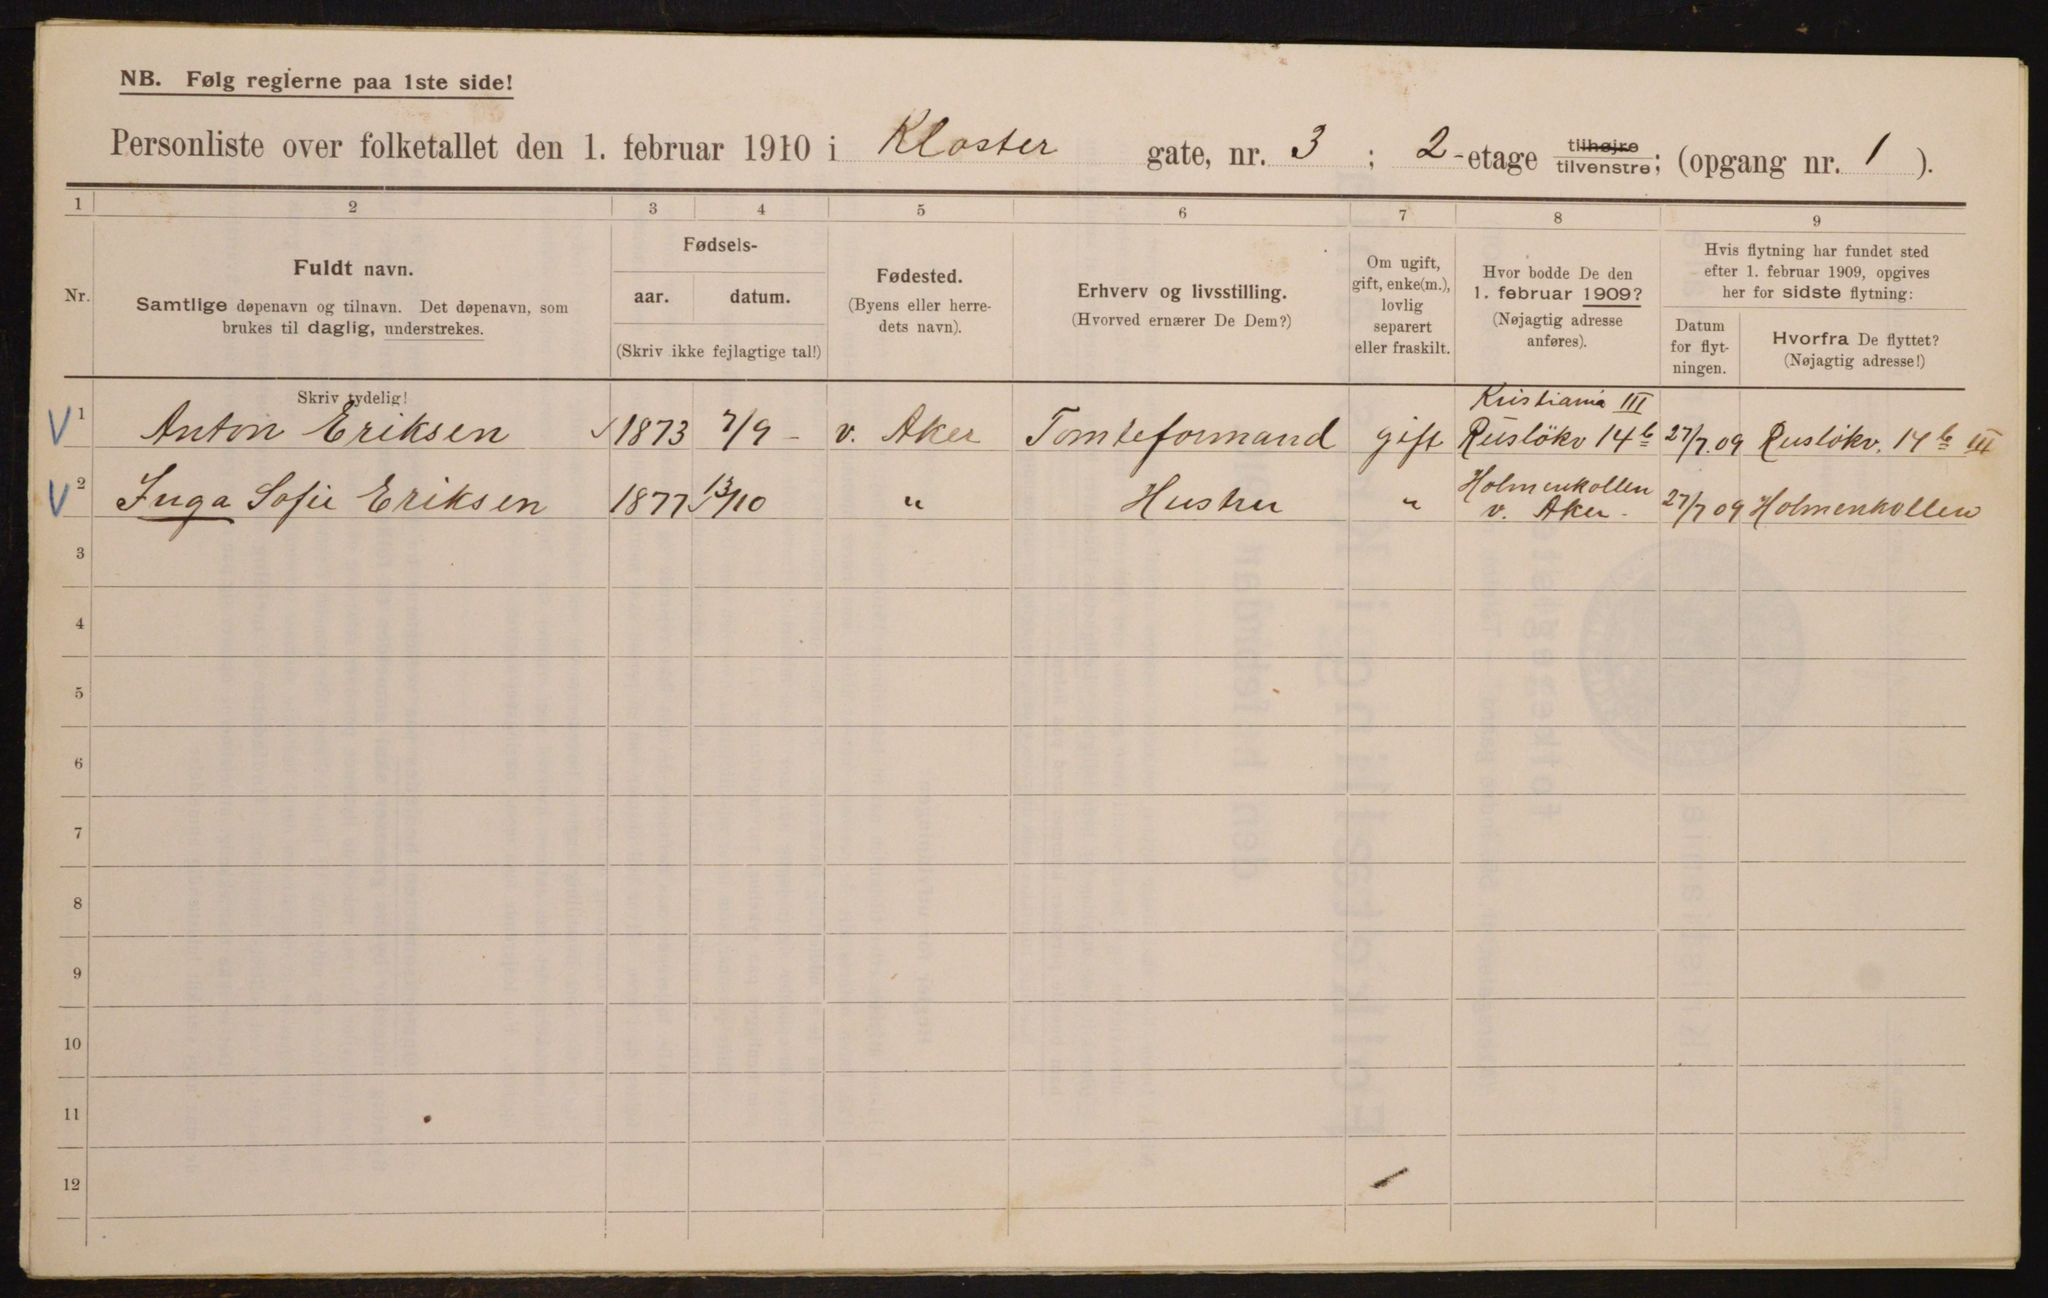 NB. Følg reglerne paa 1ste side!
Personliste over folketallet den 1. februar 1910 i Kloster gate, nr. 3 ; 2-etage tilhøjre tilvenstre; (opgang nr. 1 ).
1 2 3 4 5 6 7 8 9
Nr.
Fuldt navn.
Samtlige døpenavn og tilnavn. Det døpenavn, som
brukes til daglig, understrekes.
Fødsels-
aar. datum.
(Skriv ikke fejlagtige tal!)
Fødested.
(Byens eller herre-
dets navn).
Erhverv og livsstilling.
(Hvorved ernærer De Dem?)
Om ugift,
gift, enke(m.),
lovlig
separert
eller fraskilt.
Hvor bodde De den
1. februar 1909?
(Nøjagtig adresse
anføres).
Hvis flytning har fundet sted
efter 1. februar 1909, opgives
her for sidste flytning:
Datum
for flyt-
ningen.
Hvorfra De flyttet?
(Nøjagtig adresse!)
Skriv tydelig!
Kristiania III
V 1 Anton Eriksen 1873 7/9 - v. Aker Tomteformand gift Rusløkv 14b 27/7.09 Rusløkv. 14b III
Holmenkollen
V 2 Inga Sofie Eriksen 1877 13/10 " Hustru " v. Aker. 27/7 09 Holmenkollen
3
4
5
6
7
8
9
10
11
12